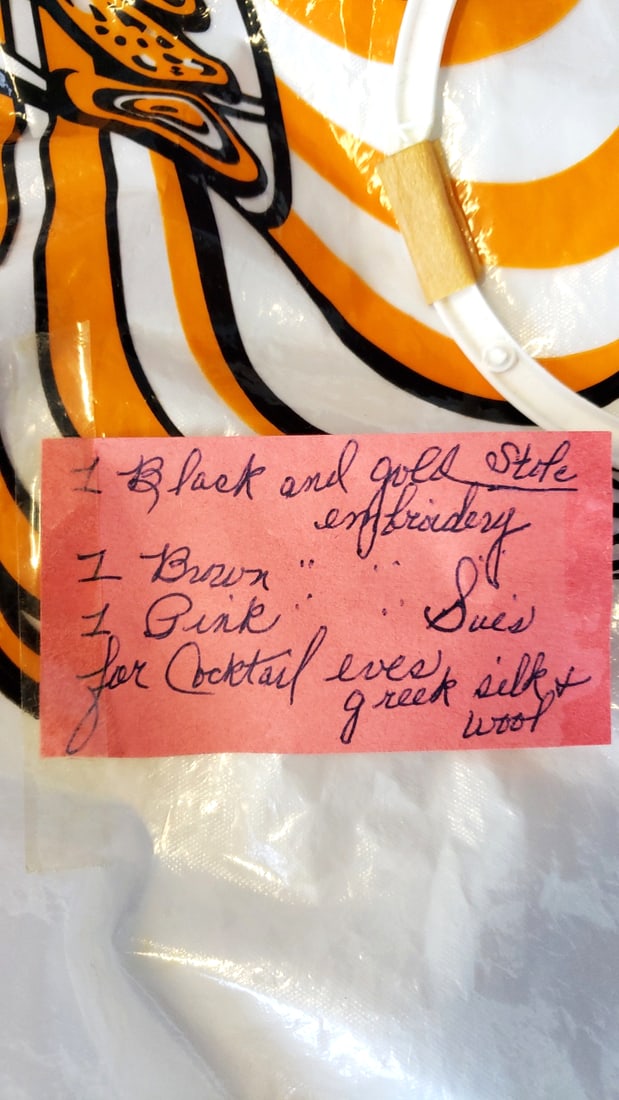 1 Black and gold Stole
embroidery
1 Brown " " "
1 Pink " " Sue's
for Cocktail eves
greek silk &
wool